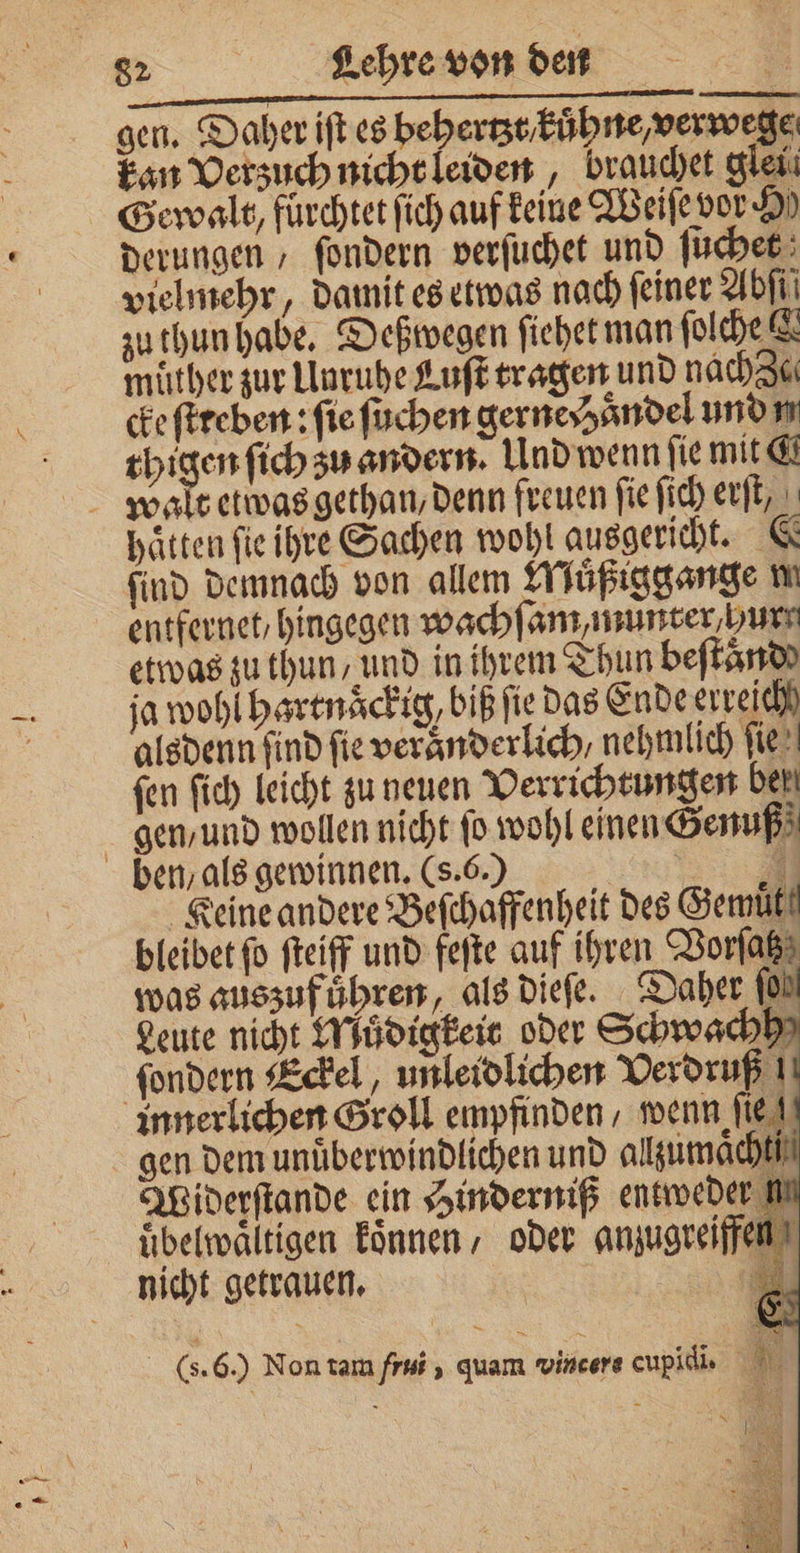 82 Lehre von den
gen. Daher iſt es behertzt, kuͤhne, verwege
kan Verzuch nicht leiden, brauchet glei
Gewalt, fuͤrchtet ſich auf keine Weiſe vor H
derungen, ſondern verſuchet und ſuchet
vielmehr, damit es etwas nach ſeiner Abſi
zu thun habe. Deßwegen ſiehet man ſolche
muͤther zur Unruhe Luſt tragen und nach
cke ſtreben: ſie ſuchen gerne Haͤndel und
thigen ſich zu andern. Und wenn ſie mit
walt etwas gethan, denn freuen ſie ſich erſt,
haͤtten ſie ihre Sachen wohl ausgericht.
ſind demnach von allem Muͤßiggange
entfernet, hingegen wachſam, munter, hur
etwas zu thun, und in ihrem Thun beſtaͤnd
ja wohl hartnaͤckig, biß ſie das Ende erreich
alsdenn ſind ſie veraͤnderlich, nehmlich ſie
ſen ſich leicht zu neuen Verrichtungen be
gen, und wollen nicht ſo wohl einen Genuß
ben, als gewinnen. (s.6.)
Keine andere Beſchaffenheit des Gemuͤt
bleibet ſo ſteiff und feſte auf ihren Vorſatz
was auszufuͤhren, als dieſe. Daher ſo
Leute nicht Muͤdigkeit oder Schwachh
ſondern Eckel, unleidlichen Verdruß
innerlichen Groll empfinden, wenn ſie
gen dem unuͤberwindlichen und allzumaͤchti
Widerſtande ein Hinderniß entweder
uͤbelwaͤltigen koͤnnen, oder anzugreiffen
nicht getrauen.
E
(s.6.) Non tam frui, quam vincere cupidi.